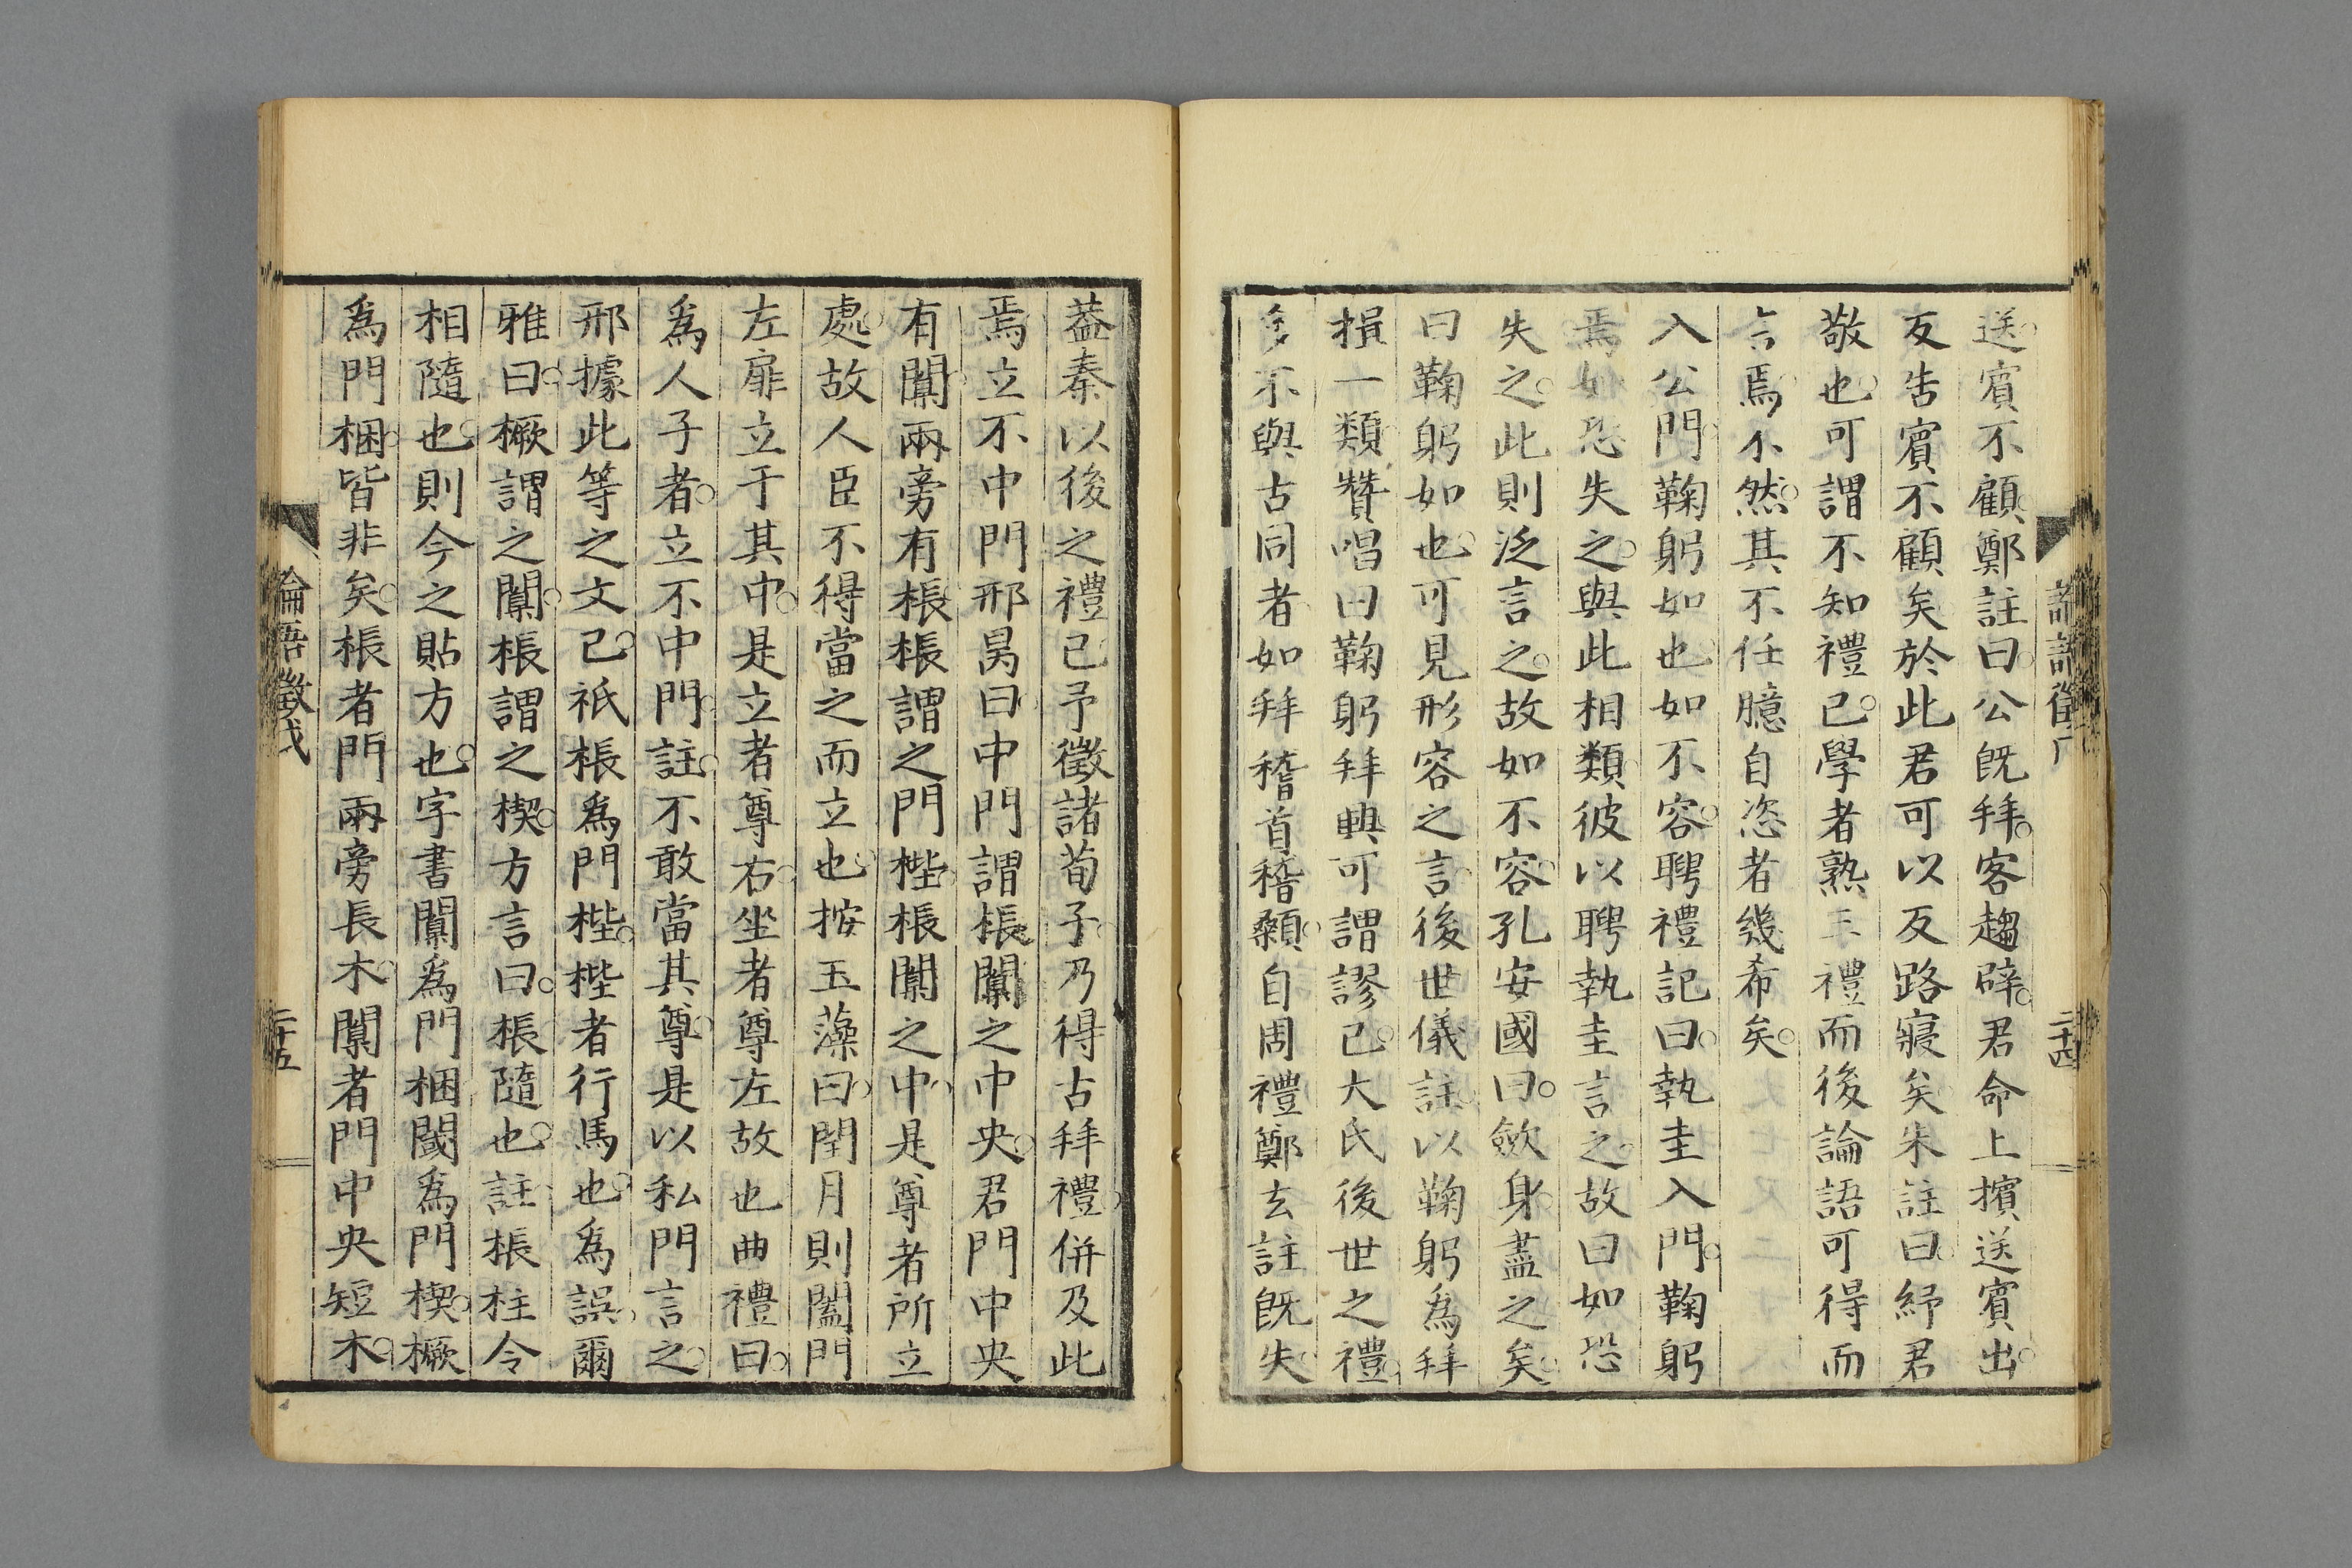 送賓不顧鄭註曰公既拜客趨辟君命上擯送賓出
反告賓不顧矣於此君可以反路寢矣朱註曰紓君
敬也可謂不知禮已學者熟三禮而後論語可得而
言焉不然其不任臆自恣者幾希矣
入公門鞠躬如也如不容聘禮記曰執圭入門鞠躬
焉如恐失之與此相類彼以聘執圭言之故曰如恐
失之此則泛言之故如不容孔安國曰斂身蓋之矣
曰鞠躬如也可見形容之言後世儀註以鞠躬為拜
揖一類贊唱曰鞠躬拜興可謂謬已大氐後世之禮
多不與古同者如拜稽首稽顙自周禮鄭玄註既失
二十四
蓋秦以後之禮已予徵諸荀子乃得古拜禮併及此
焉立不中門邢昺曰中門謂棖闑之中央君門中央
有闑兩旁有棖棖謂之門梐棖闑之中是尊者所立
處故人臣不得當之而立也按玉藻曰閏月則闔門
左扉立于其中是立者尊右坐者尊左故也曲禮曰
為人子者立不中門註不敢當其尊是以私門言之
邢據此等之文已祇棖為門梐梐者行馬也為誤爾
雅曰橛謂之闑棖謂之楔方言曰棖隨也註棖柱令
相隨也則今之貼方也字書闑為門梱閾為門楔橛
為門梱皆非矣棖者門兩旁長木闑者門中央短木
論語徵戊
二十五